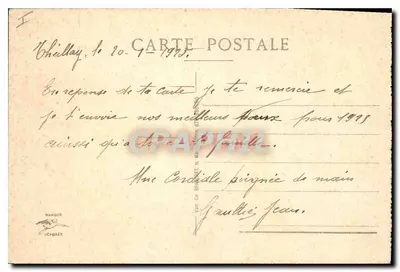 I
CARTE POSTALE
Theillay, le 20-1-1923.
En reponse de ta Carte je te remercie et
je t'envoie nos meilleurs voeux pour 1923
ainsi qu'a toute ta famille.
Une Cordiale poignée de main
Gaultier Jean.
MARQUE